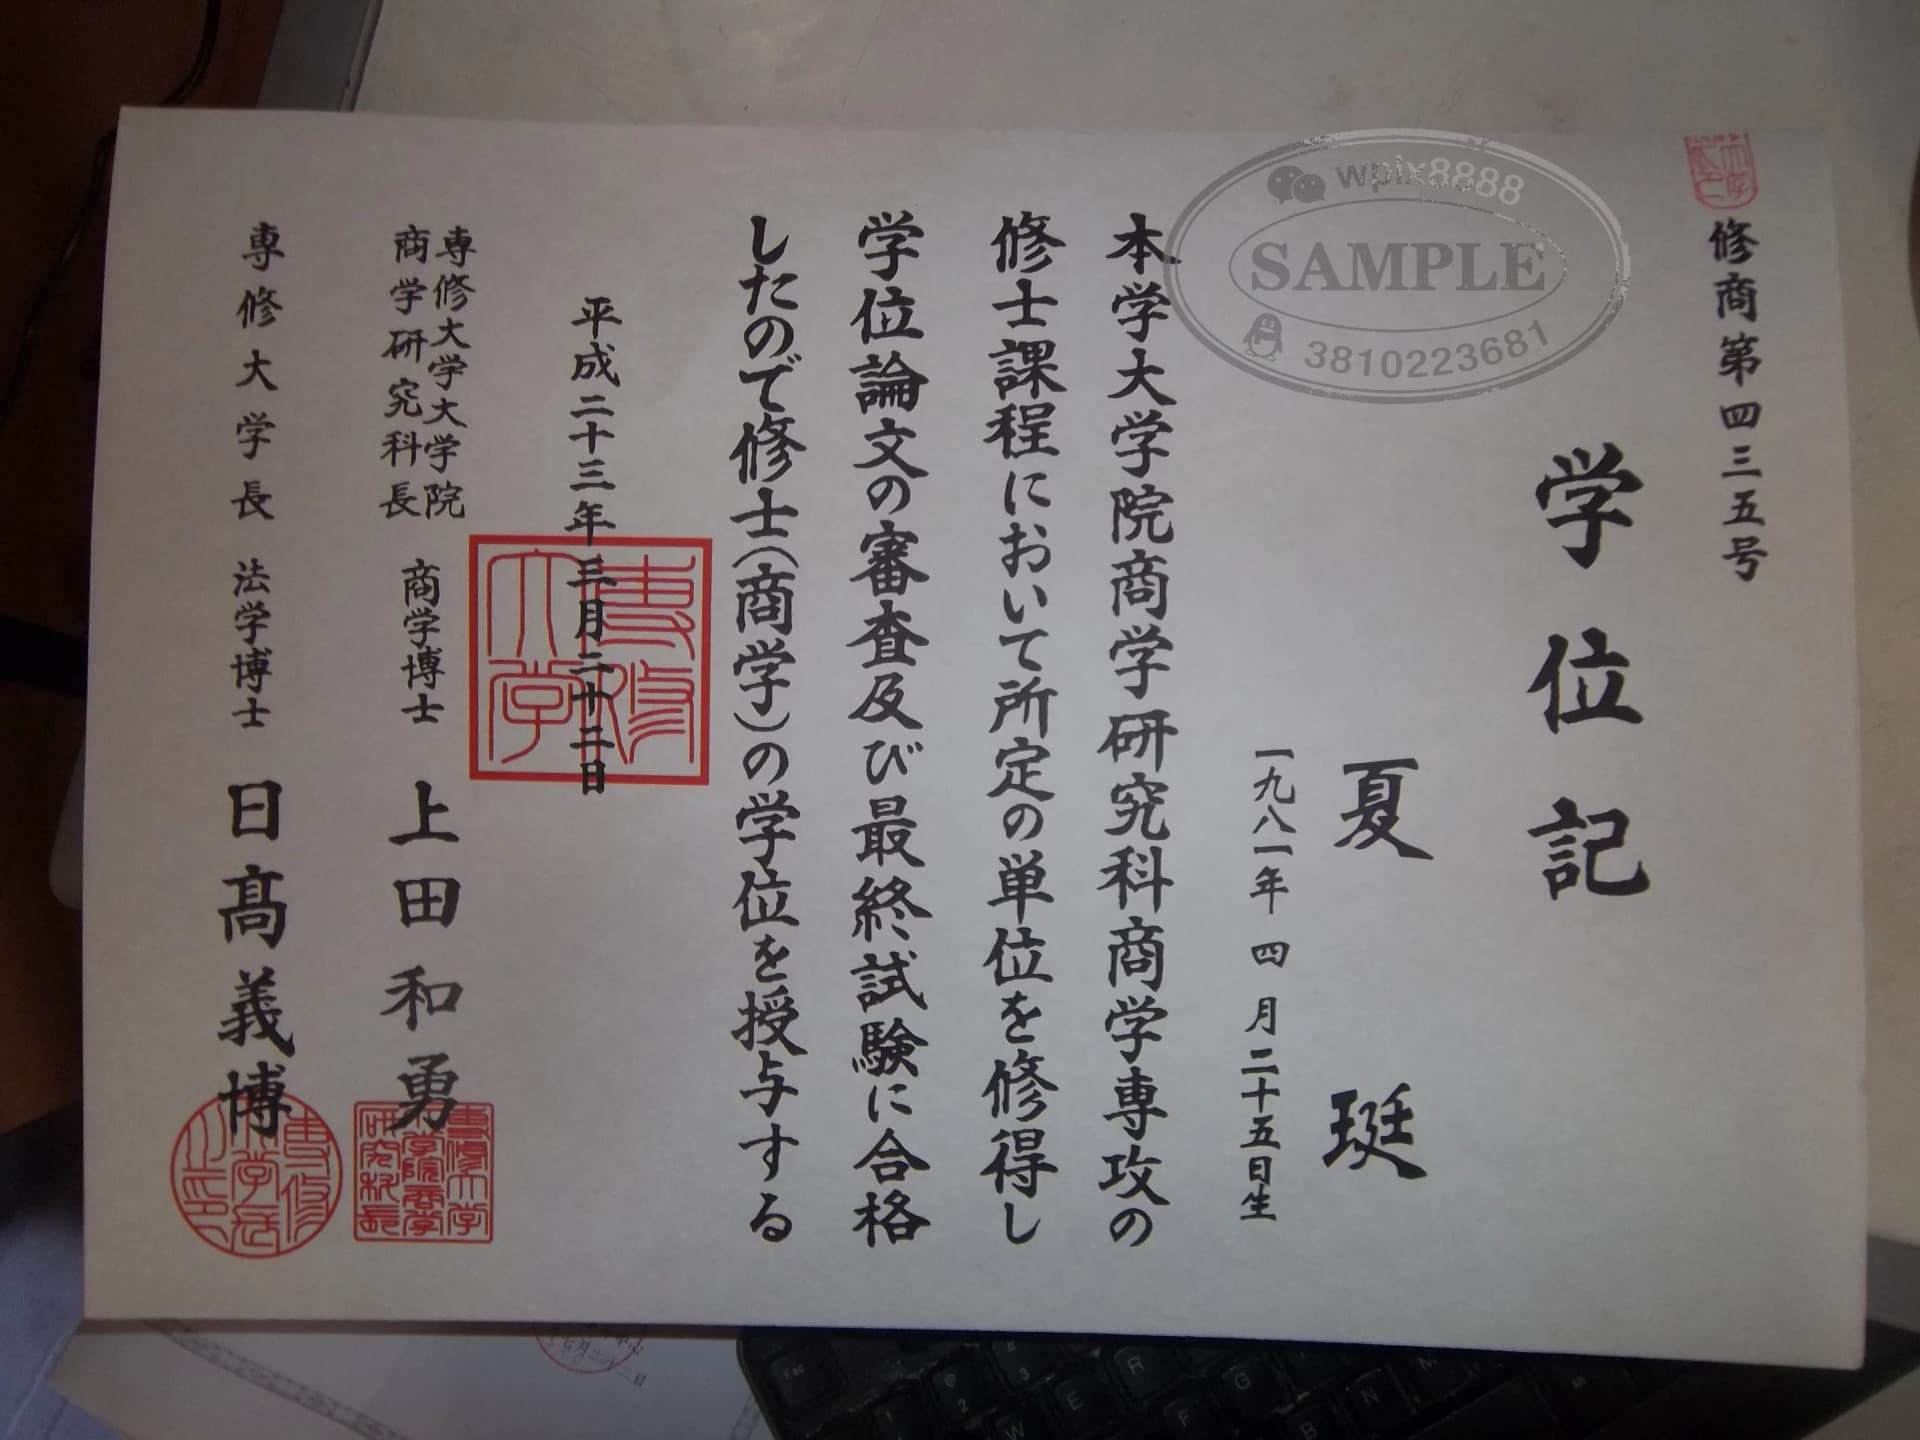 修商第四三五号
学位記
夏珽
一九八一年四月二十五日生
本学大学院商学研究科商学専攻の
修士課程において所定の単位を修得し
学位論文の審査及び最終試験に合格
したので修士(商学)の学位を授与する
平成二十三年三月二十二日
専修大学大学院
商学研究科長 商学博士 上田和勇
専修大学長 法学博士 日髙義博
専修大学
wplx8888
SAMPLE
3810223681